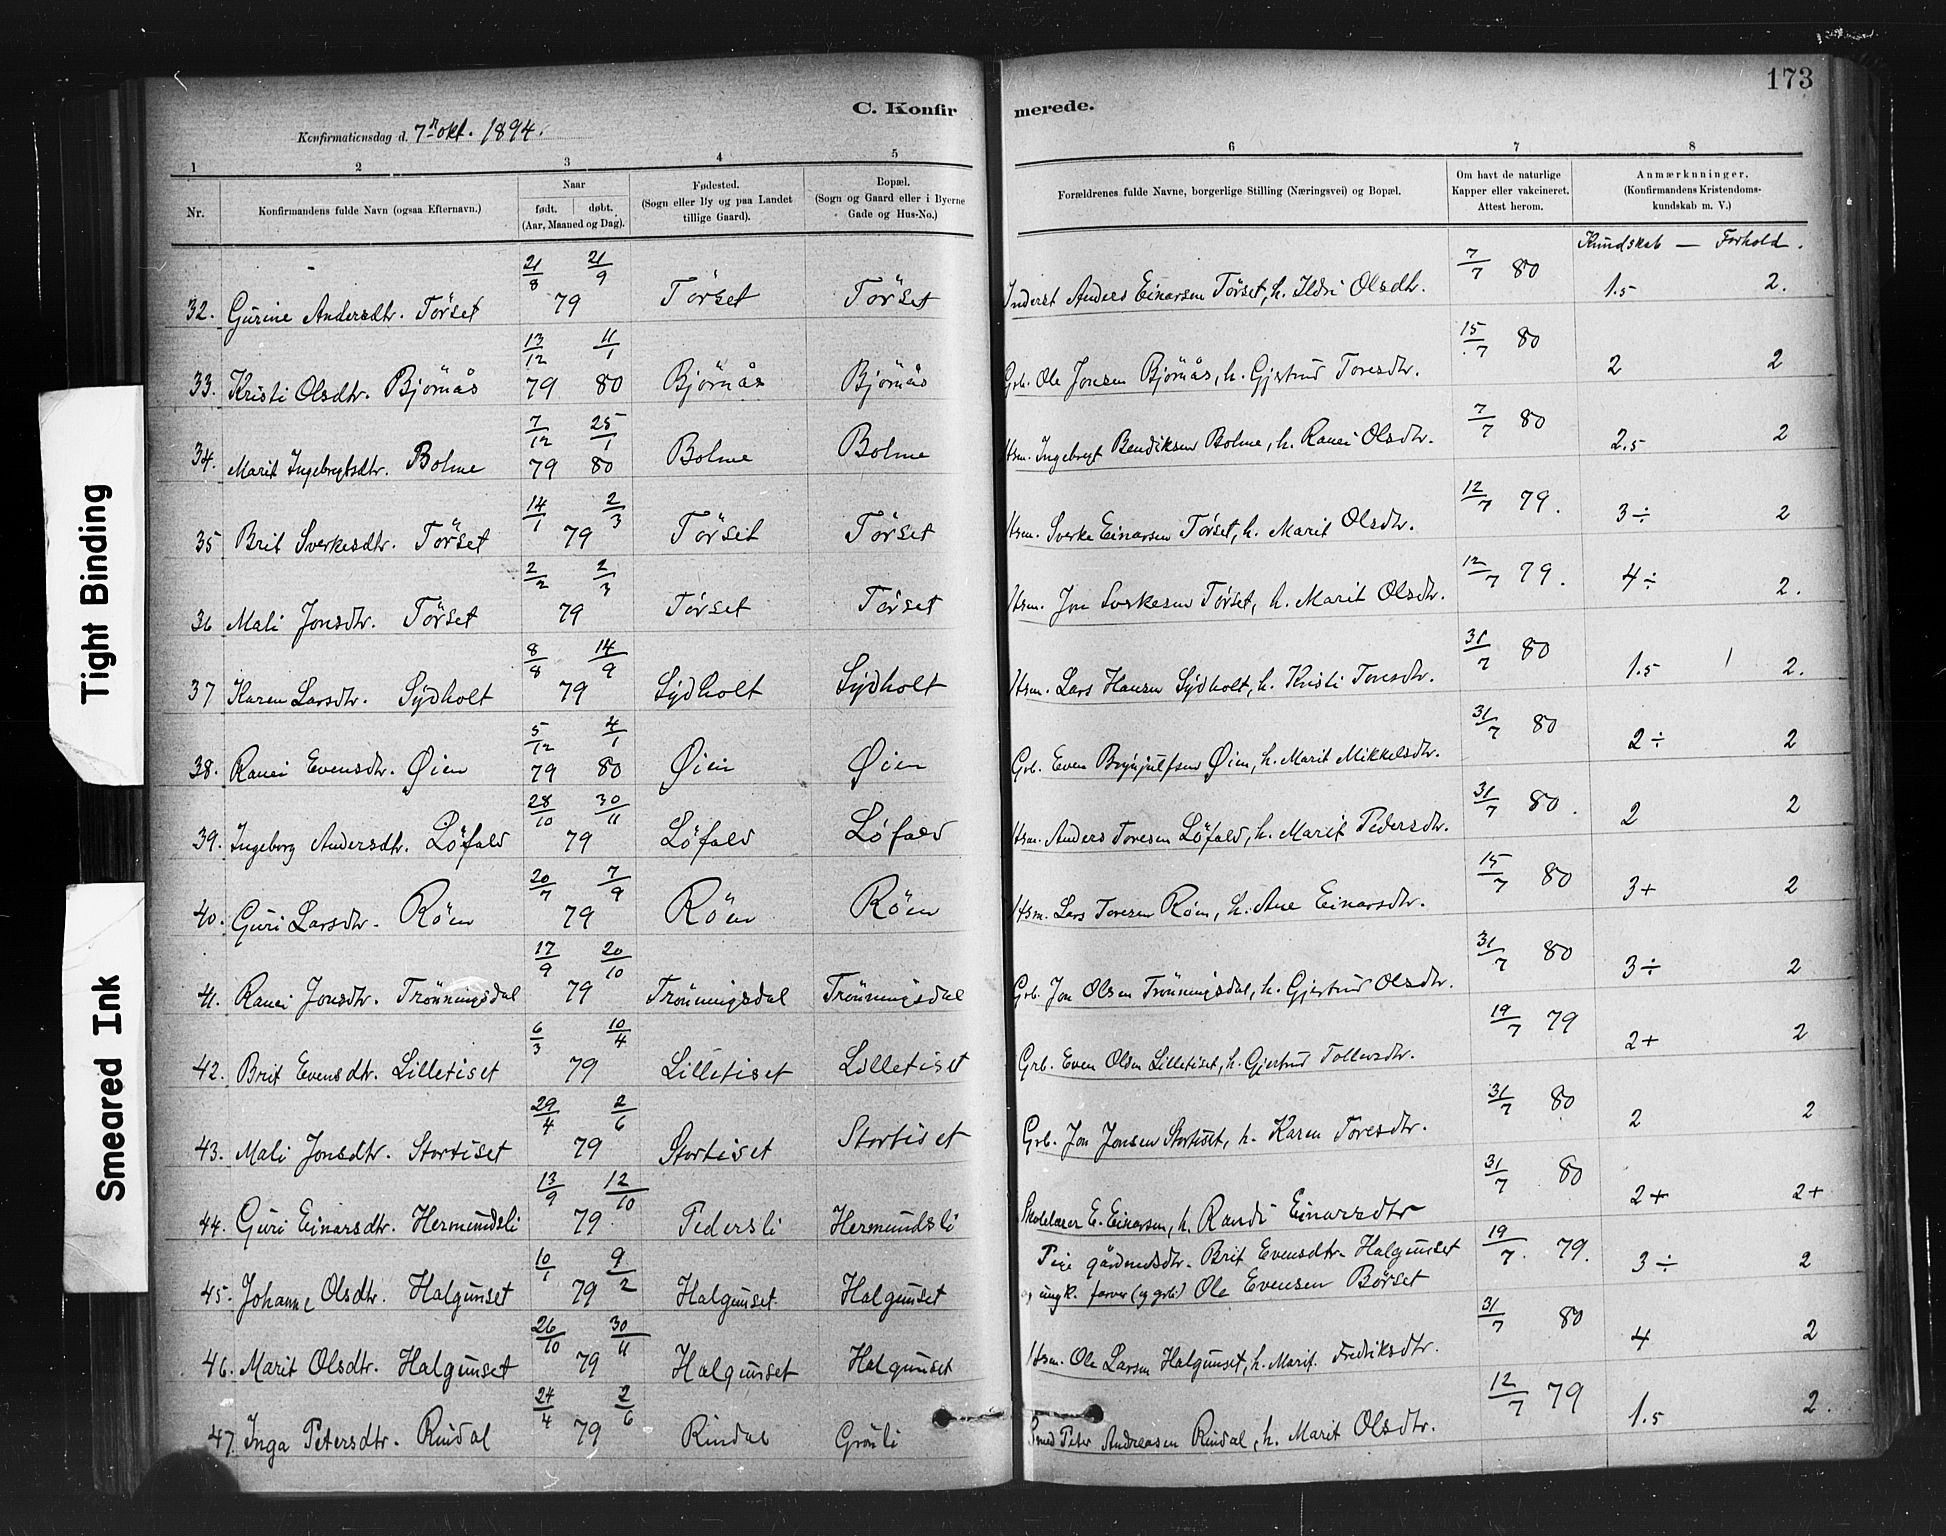 173
C. Konfirmerede.
Konfirmationsdag d. 7de okt. 1894.
1 2 3 4 5 6 7 8
Nr. Konfirmandens fulde Navn (ogsaa Efternavn.) Naar født. døbt. (Aar, Maaned og Dag). Fødested. (Sogn eller By og paa Landet tillige Gaard). Bopæl. (Sogn og Gaard eller i Byerne Gade og Hus-No.) Forældrenes fulde Navne, borgerlige Stilling (Næringsvei) og Bopæl. Om havt de naturlige Kapper eller vakcineret. Attest herom. Anmærkninger. (Konfirmandens Kristendomskundskab m. V.)
Kundskab — Forhold.
32. Gurine Andersdtr. Törset 21/8 21/9 79 Törset Törset Inderst Anders Einarsen Törset, h. Ildri Olsdtr. 7/7 80 1.5 2.
33. Kristi Olsdtr. Björnås 13/12 79 11/1 80 Björnås Björnås Grb. Ole Jonsen Björnås, h. Gjertrud Toresdtr. 15/7 80 2 2
34. Marit Ingebrigtsdtr. Bolme 7/12 79 25/1 80 Bolme Bolme Hsm. Ingebrigt Bendiksen Bolme, h. Ranei Olsdtr. 7/7 80 2.5 2
35 Brit Sverkesdtr. Törset 14/1 2/3 79 Törset Törset Hsm. Sverke Einarsen Törset, h. Marit Olsdtr. 12/7 79. 3÷ 2
36 Mali Jonsdtr. Törset 2/2 2/3 79 Törset Törset Hsm. Jon Sverkesen Törset, h. Marit Olsdtr. 12/7 79. 4÷ 2.
37 Karen Larsdtr. Sydholt 8/8 14/9 79 Sydholt Sydholt Hsm. Lars Hansen Sydholt, h. Kristi Toresdtr. 31/7 80 1.5 2.
38. Ranei Evensdtr. Øien 5/12 79 4/1 80 Øien Øien Grb. Even Brynjulfsen Øien, h. Marit Mikkelsdtr. 31/7 80 2÷ 2
39. Ingeborg Andersdtr. Löfald 28/10 30/11 79 Löfald Löfald Hsm. Anders Toresen Löfald, h. Marit Pedersdtr. 31/7 80. 2 2
40. Guri Larsdtr. Röen 20/7 7/9 79 Röen Röen Hsm. Lars Toresen Röen, h. Ane Einarsdtr. 15/7 80 3+ 2
41. Ranei Jonsdtr. Trönningsdal 17/9 20/10 79 Trönningsdal Trönningsdal Grb. Jon Olsen Trönningsdal, h. Gjertrud Olsdtr. 31/7 80 3÷ 2
42. Brit Evensdtr. Lilletiset 6/3 10/4 79 Lilletiset Lilletiset Grb. Even Olsen Lilletiset, h. Gjertrud Tollevsdtr. 19/7 79 2+ 2
43. Mali Jonsdtr. Stortiset 29/4 2/6 79 Stortiset Stortiset Grb. Jon Jonsen Stortiset, h. Karen Toresdtr. 31/7 80 2 2
44. Guri Einarsdtr. Hermundsli 13/9 12/10 79 Pedersli Hermundsli Skolelærer E. Einarsen, h. Randi Einarsdtr 31/7 80 2+ 2+
45. Johanne Olsdtr. Halgunset 10/1 9/2 79 Halgunset Halgunset Pige gårdmdsdtr. Brit Evensdtr. Halgunset
og ungk. farver (og grb.) Ole Evensen Börset 19/7. 79. 3÷ 2
46. Marit Olsdtr. Halgunset 26/10 30/11 79 Halgunset Halgunset Hsm. Ole Larsen Halgunset, h. Marit Fredriksdtr. 31/7 80 4 2
47. Inga Petersdtr. Rindal 24/4 2/6 79 Rindal Grönli Smed Peter Andreasen Rindal, h. Marit Olsdtr. 12/7 79 1.5 2.
Tight Binding
Smeared Ink